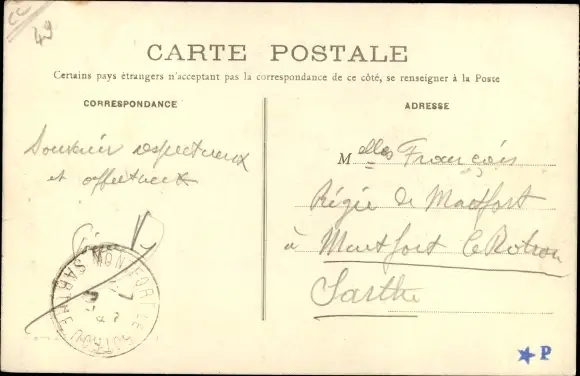 CC
49
CARTE POSTALE
Certains pays étrangers n'acceptant pas la correspondance de ce côté, se renseigner à la Poste
CORRESPONDANCE
ADRESSE
Souvenir respectueux
et affectueux
Melles François
Régie de Montfort
à Montfort le Rotrou
Sarthe
MONTFORT-LE-ROTROU
SARTHE
P